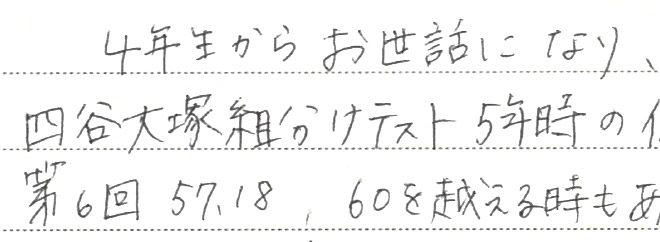 4年生からお世話になり、
四谷大塚組分けテスト 5年時の
第6回 57.18, 60を越える時もあ